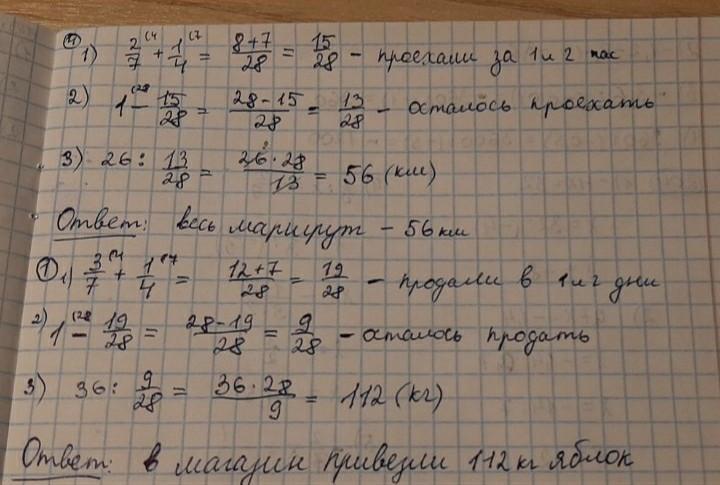 ④ 1) 2/7 (4 + 1/4 (7 = 8+7/28 = 15/28 – проехали за 1 и 2 час
2) 1 (28 – 15/28 = 28-15/28 = 13/28 – осталось проехать
3) 26 : 13/28 = 26·28/13 = 56 (км)
Ответ: весь маршрут – 56 км
① 1) 3/7 (4 + 1/4 (7 = 12+7/28 = 19/28 – продали в 1 и 2 дни
2) 1 (28 – 19/28 = 28-19/28 = 9/28 – осталось продать
3) 36 : 9/28 = 36·28/9 = 112 (кг)
Ответ: в магазин привезли 112 кг яблок